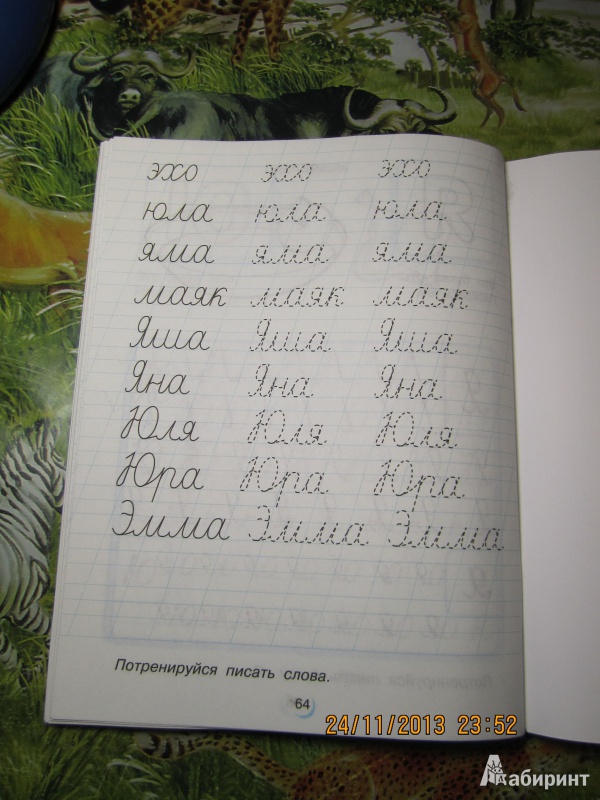 эхо эхо эхо
юла юла юла
яма яма яма
маяк маяк маяк
Яша Яша Яша
Яна Яна Яна
Юля Юля Юля
Юра Юра Юра
Эмма Эмма Эмма
Потренируйся писать слова.
64
24/11/2013 23:52
Лабиринт